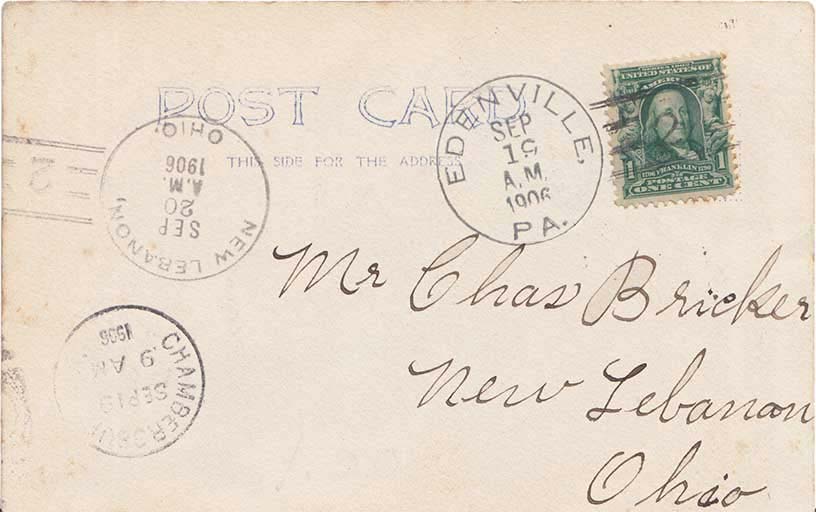 POST CARD
THIS SIDE FOR THE ADDRESS
EDENVILLE,
SEP
19
A.M.
1906
PA.
SERIES 1902
UNITED STATES OF
AMERICA
1706 FRANKLIN 1790
1 POSTAGE 1
ONE CENT
2
NEW LEBANON,
SEP
20
A.M.
1906
OHIO.
CHAMBERSBU
SEP 19
9 AM
1906
Mr Chas Bricker
New Lebanon
Ohio